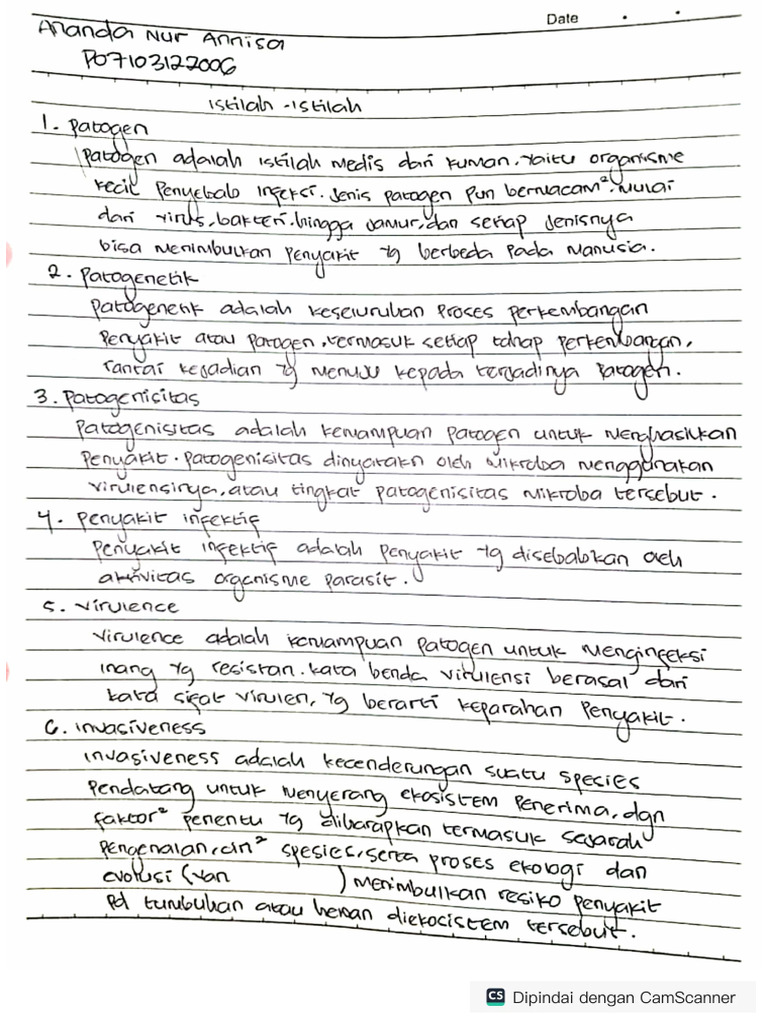 Date
Ananda Nur Annisa
P07103122006
Istilah-istilah
1. Patogen
Patogen adalah istilah medis dari kuman, yaitu organisme
kecil penyebab infeksi. Jenis patogen pun bermacam². Mulai
dari virus, bakteri, hingga jamur, dan setiap jenisnya
bisa menimbulkan penyakit yg berbeda pada manusia.
2. Patogenetik
Patogenetik adalah keseluruhan proses perkembangan
penyakit atau patogen, termasuk setiap tahap perkembangan,
rantai kejadian yg menuju kepada terjadinya patogen.
3. Patogenisitas
Patogenisitas adalah kemampuan patogen untuk menghasilkan
penyakit. Patogenisitas dinyatakn oleh mikroba menggunakan
virulensinya, atau tingkat patogenisitas mikroba tersebut.
4. Penyakit infektif
Penyakit infektif adalah penyakit yg disebabkan oleh
aktivitas organisme parasit.
5. Virulence
Virulence adalah kemampuan patogen untuk menginfeksi
inang yg resistan. kata benda virulensi berasal dari
kata sifat virulen, yg berarti keparahan penyakit.
6. Invasiveness
Invasiveness adalah kecenderungan suatu spesies
pendatang untuk menyerang ekosistem penerima, dgn
faktor² penentu yg diharapkan termasuk sejarah
pengenalan, ciri² spesies, serta proses ekologi dan
evolusi (van ) menimbulkan resiko penyakit
pd tumbuhan atau hewan diekocistem tersebut.
CS Dipindai dengan CamScanner